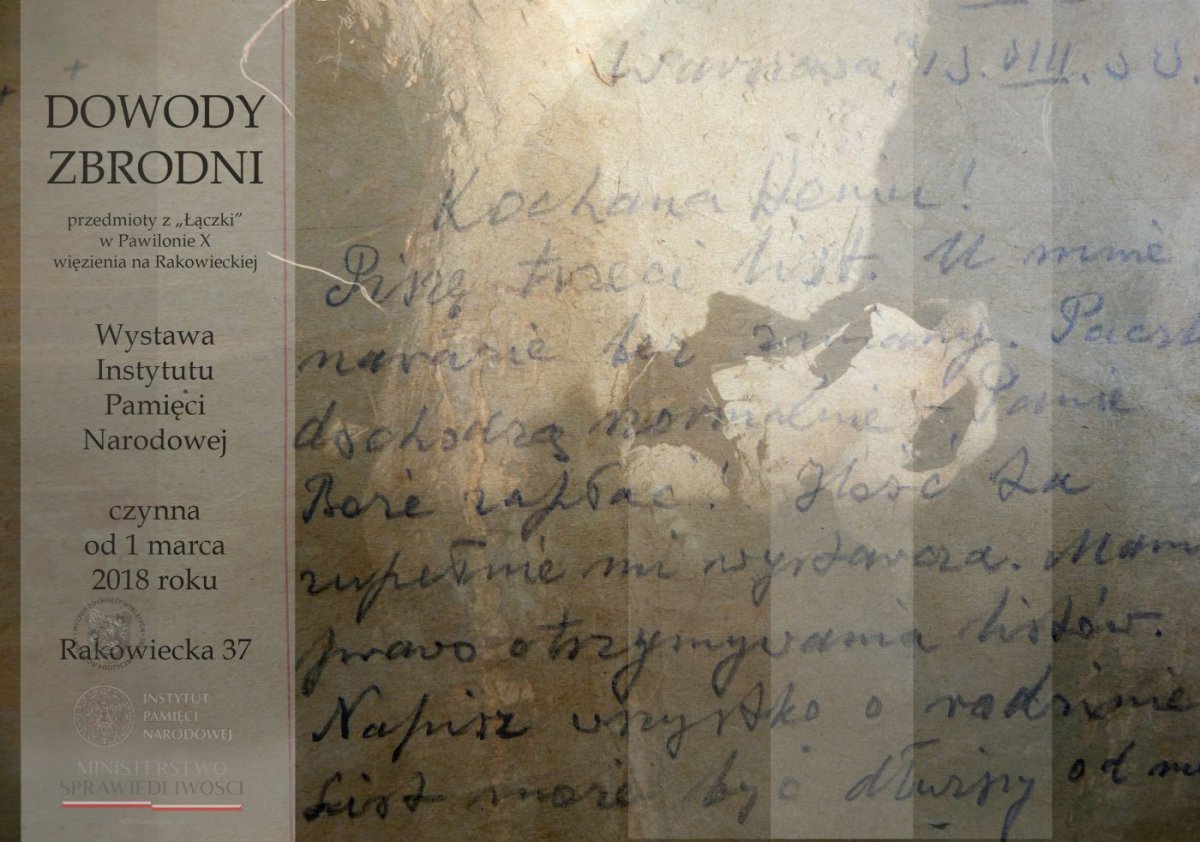 DOWODY
ZBRODNI
przedmioty z „Łączki”
w Pawilonie X
więzienia na Rakowieckiej
Wystawa
Instytutu
Pamięci
Narodowej
czynna
od 1 marca
2018 roku
Rakowiecka 37
INSTYTUT
PAMIĘCI
NARODOWEJ
MINISTERSTWO
SPRAWIEDLIWOŚCI
Warszawa, VIII.
Kochana Heniu!
Piszę trzeci list. U mnie
narazie bez zmiany.
dochodzą normalnie – Panie
Boże zapłać! Ilość ta
zupełnie mi wystarcza. Mam
prawo otrzymywania listów.
Napisz wszystko o rodzinie
List może być dłuższy od